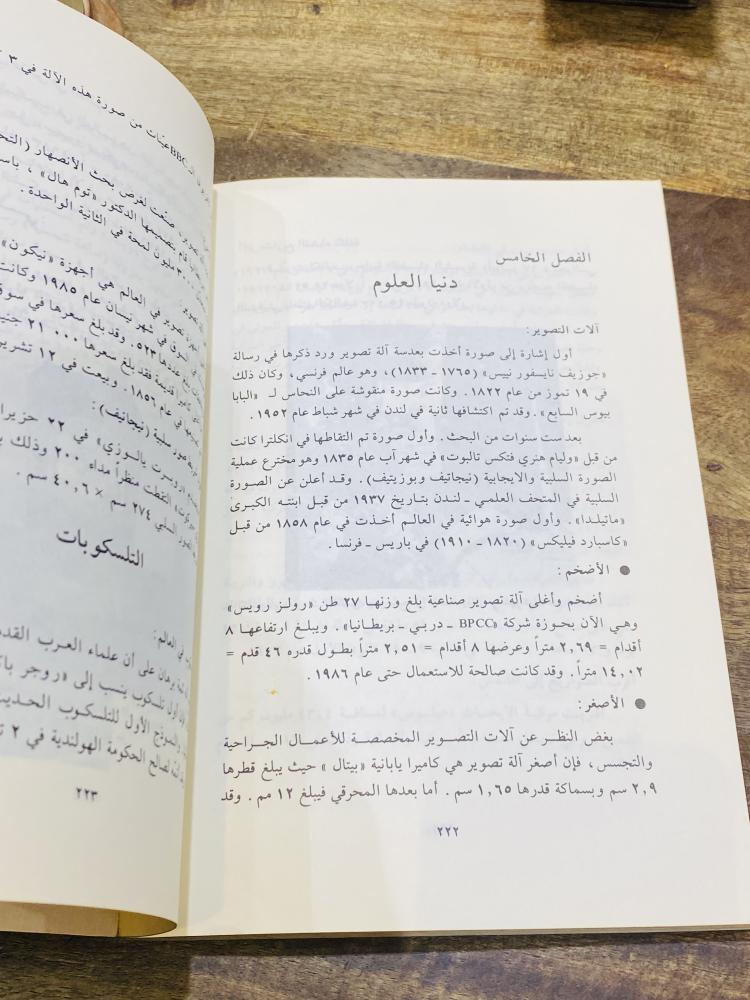 الفصل الخامس
دنيا العلوم
آلات التصوير:
أول إشارة إلى صورة أخذت بعدسة آلة تصوير ورد ذكرها في رسالة
«جوزيف نايسفور نييس» (١٧٦٥ - ١٨٣٣)، وهو عالم فرنسي، وكان ذلك
في ١٩ تموز من عام ١٨٢٢. وكانت صورة منقوشة على النحاس لـ «البابا
بيوس السابع». وقد تم اكتشافها ثانية في لندن في شهر شباط عام ١٩٥٢.
بعد ست سنوات من البحث. وأول صورة تم التقاطها في انكلترا كانت
من قبل «وليام هنري فتكس تالبوت» في شهر آب عام ١٨٣٥ وهو مخترع عملية
الصورة السلبية والايجابية (نيجاتيف وبوزيتيف). وقد أعلن عن الصورة
السلبية في المتحف العلمي - لندن بتاريخ ١٩٣٧ من قبل ابنته الكبرى
«ماتيلدا». وأول صورة هوائية في العالم أخذت في عام ١٨٥٨ من قبل
«كاسبارد فيليكس» (١٨٢٠ - ١٩١٠) في باريس - فرنسا.
● الأضخم:
أضخم وأغلى آلة تصوير صناعية بلغ وزنها ٢٧ طن «رولز رويس»
وهي الآن بحوزة شركة «BPCC - دربي - بريطانيا». ويبلغ ارتفاعها ٨
أقدام = ٢,٦٩ متراً وعرضها ٨ أقدام = ٢,٥١ متراً بطول قدره ٤٦ قدم =
١٤,٠٢ متراً. وقد كانت صالحة للاستعمال حتى عام ١٩٨٦.
● الأصغر:
بغض النظر عن آلات التصوير المخصصة للأعمال الجراحية
والتجسس، فإن أصغر آلة تصوير هي كاميرا يابانية «بيتال» حيث يبلغ قطرها
٢,٩ سم وبسماكة قدرها ١,٦٥ سم. أما بعدها المحرقي فيبلغ ١٢ مم. وقد
٢٢٢
عينات من صورة هذه الآلة في ٣
صنعت لغرض بحث الأنصهار
قام بتصميمها الدكتور «توم هال»،
مليون لمحة في الثانية الواحدة.
تصوير في العالم هي أجهزة «نيكون»
في السوق في شهر نيسان عام ١٩٨٥ وكانت
عددها ٥٢٣. وقد بلغ سعرها في سوق
قديمة فقد بلغ سعرها ٢١٠٠٠ جنيه
في عام ١٨٥٦. وبيعت في ١٢ تشرين
صور سلبية (نيجاتيف):
في ٢٢ حزيران
التقطت منظراً مداه ٢٠٠ وذلك
السلبي ٢٧٤ سم × ٤٠,٦ سم.
التلسكوبات
في العالم:
برهان على أن علماء العرب القدماء
أول تلسكوب ينسب إلى «روجر
والنموذج الأول للتلسكوب الحديث
لصالح الحكومة الهولندية في ٢
٢٢٣